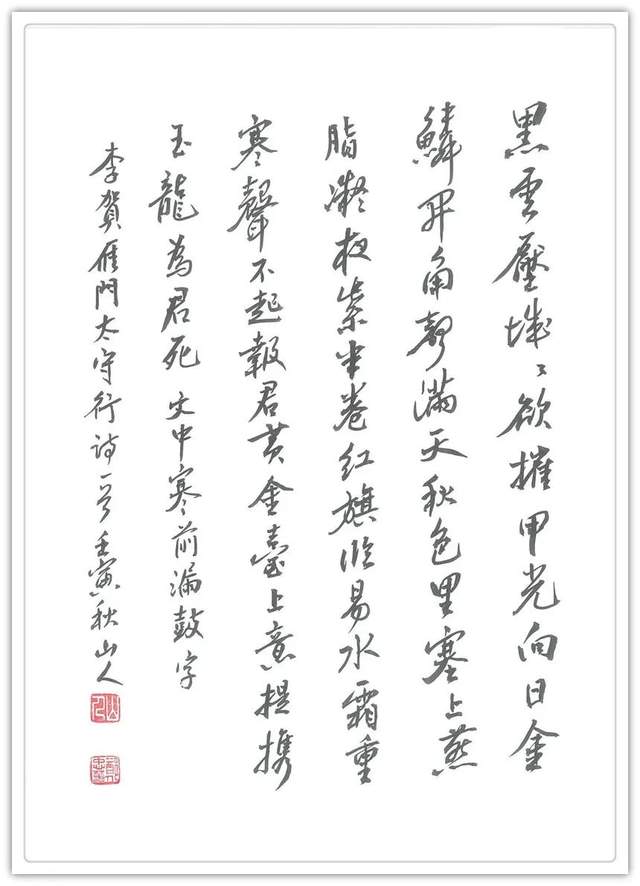 黑雲壓城〻欲摧甲光向日金
鱗開角聲滿天秋色里塞上燕
脂凝夜紫半卷红旗临易水霜重
寒聲不起報君黄金臺上意提携
玉龍為君死 文中寒前漏鼓字
李賀雁門太守行诗一首壬寅秋山人